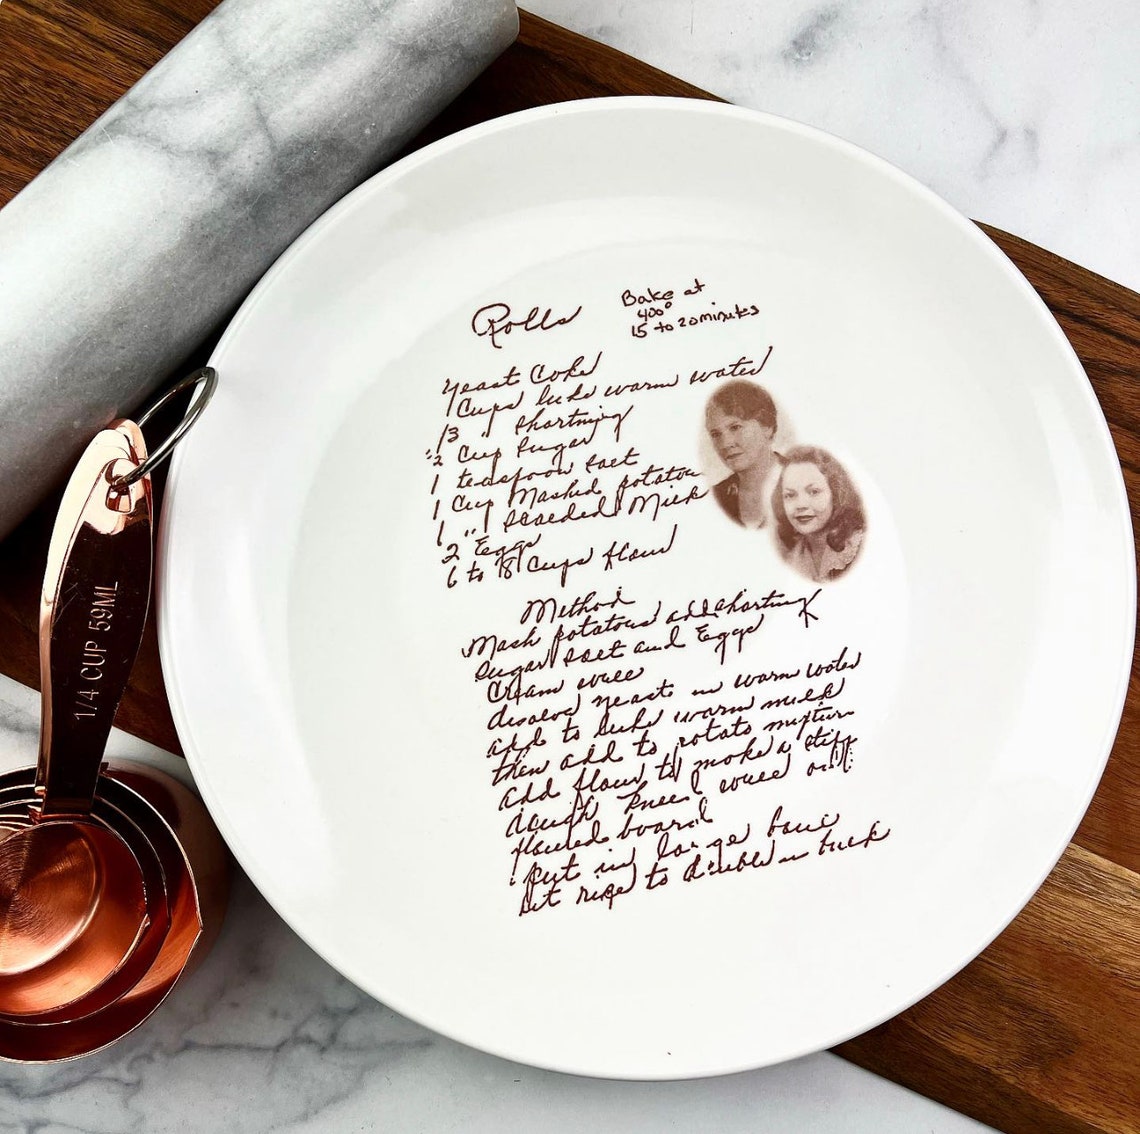 Rolls
Bake at
400°
15 to 20 minutes
Yeast Coke
1 Cups luke warm water
13 " shortning
"2 Cup Sugar
1 teaspoon salt
1 Cup Mashed potatou
1 " scalded Milk
2 Eggs
6 to 8 Cups flour
Method
Mash potatous add shortning
Sugar salt and Eggs
Cream well
disolve yeast in warm water
add to luke warm milk
then add to potato mixture
add flour to make a stiff
dough kneed well on
floured board
put in large bowl
let rise to double in bulk
1/4 CUP 59ML